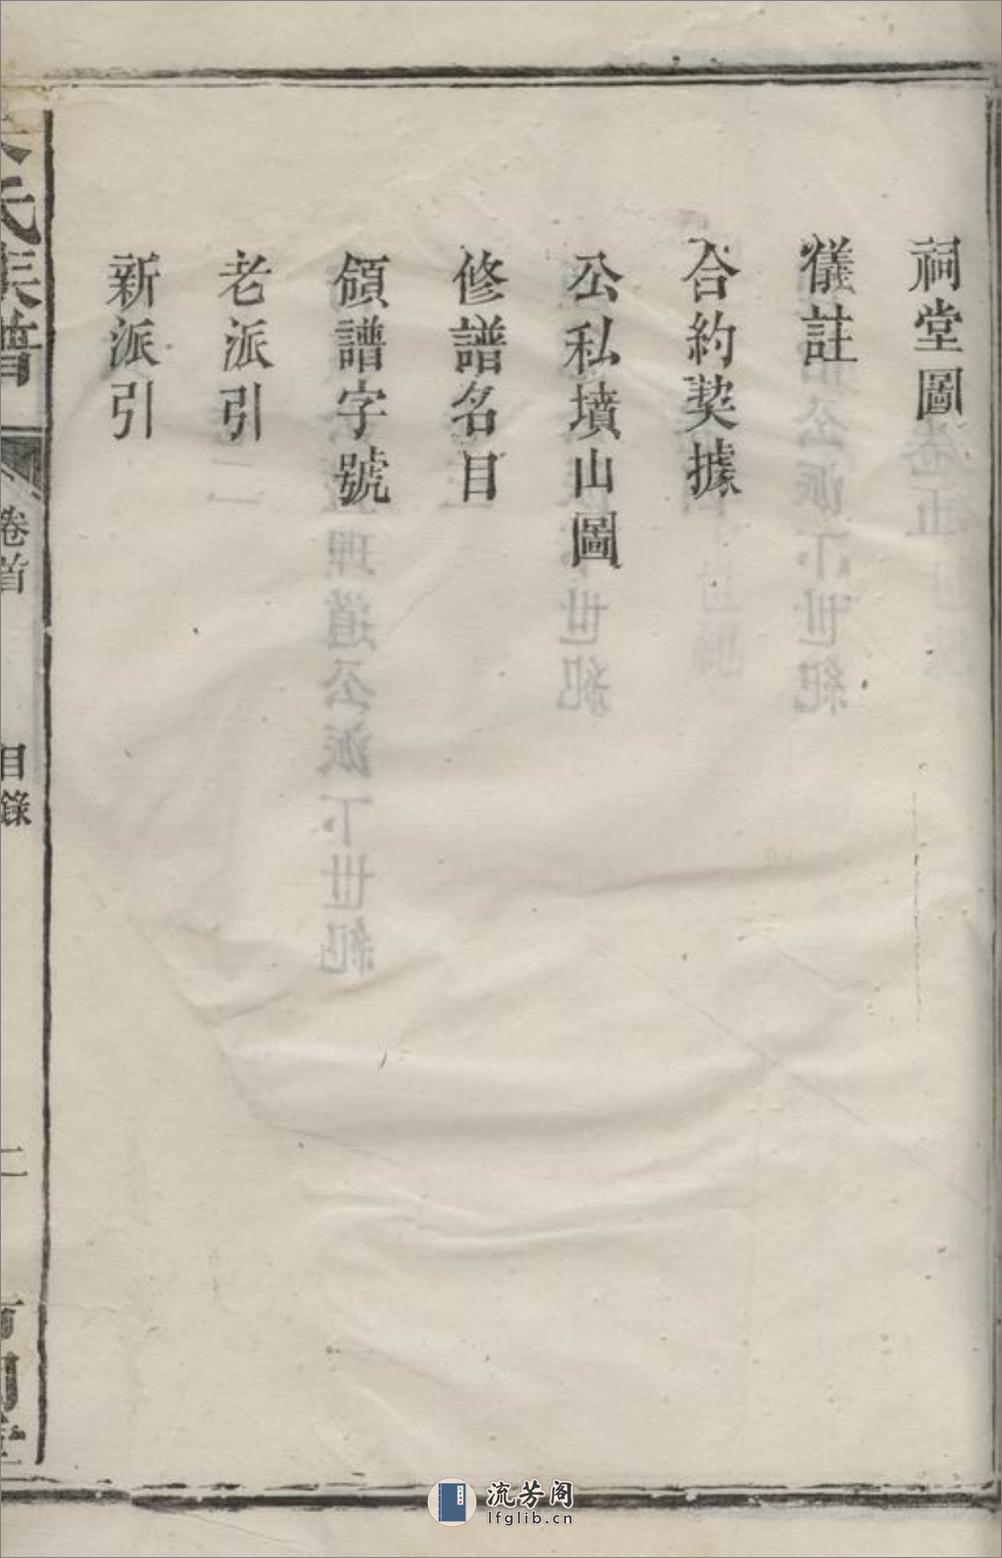 祠堂圖
儀註
合約契據
公私墳山圖
修譜名目
領譜字號
老派引
新派引
氏族譜
卷首
目錄
二
流芳阁
lfglib.cn